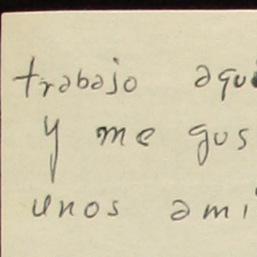 trabajo aqui
y me gus
unos ami